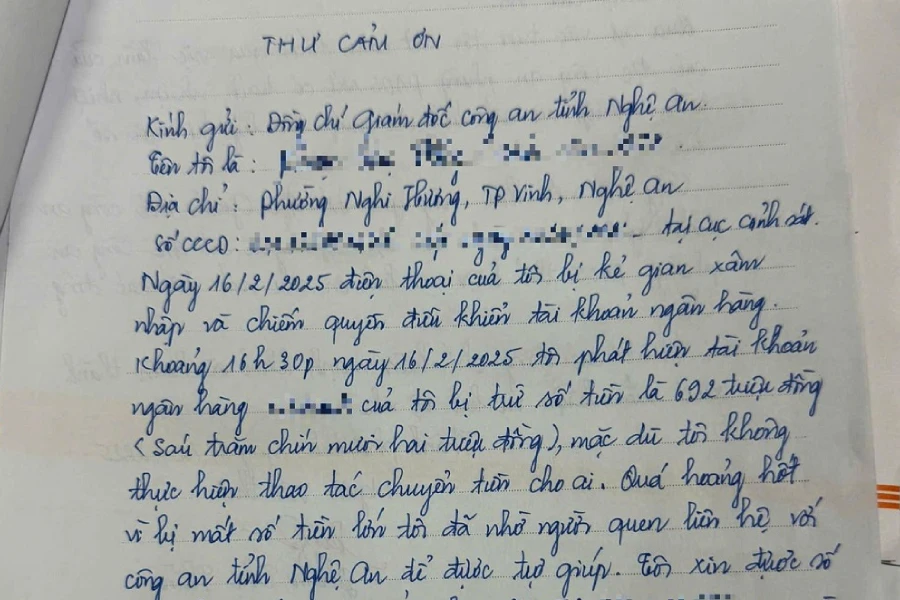 THƯ CẢM ƠN
Kính gửi: Đồng chí Giám đốc công an tỉnh Nghệ An.
Tên tôi là:
Địa chỉ: Phường Nghi Hương, TP Vinh, Nghệ An
Số CCCD: tại cục cảnh sát.
Ngày 16/2/2025 điện thoại của tôi bị kẻ gian xâm
nhập và chiếm quyền điều khiển tài khoản ngân hàng.
Khoảng 16h30p ngày 16/2/2025 tôi phát hiện tài khoản
ngân hàng của tôi bị trừ số tiền là 692 triệu đồng
(Sáu trăm chín mươi hai triệu đồng), mặc dù tôi không
thực hiện thao tác chuyển tiền cho ai. Quá hoảng hốt
vì bị mất số tiền lớn tôi đã nhờ người quen liên hệ với
công an tỉnh Nghệ An để được trợ giúp. Tôi xin được số